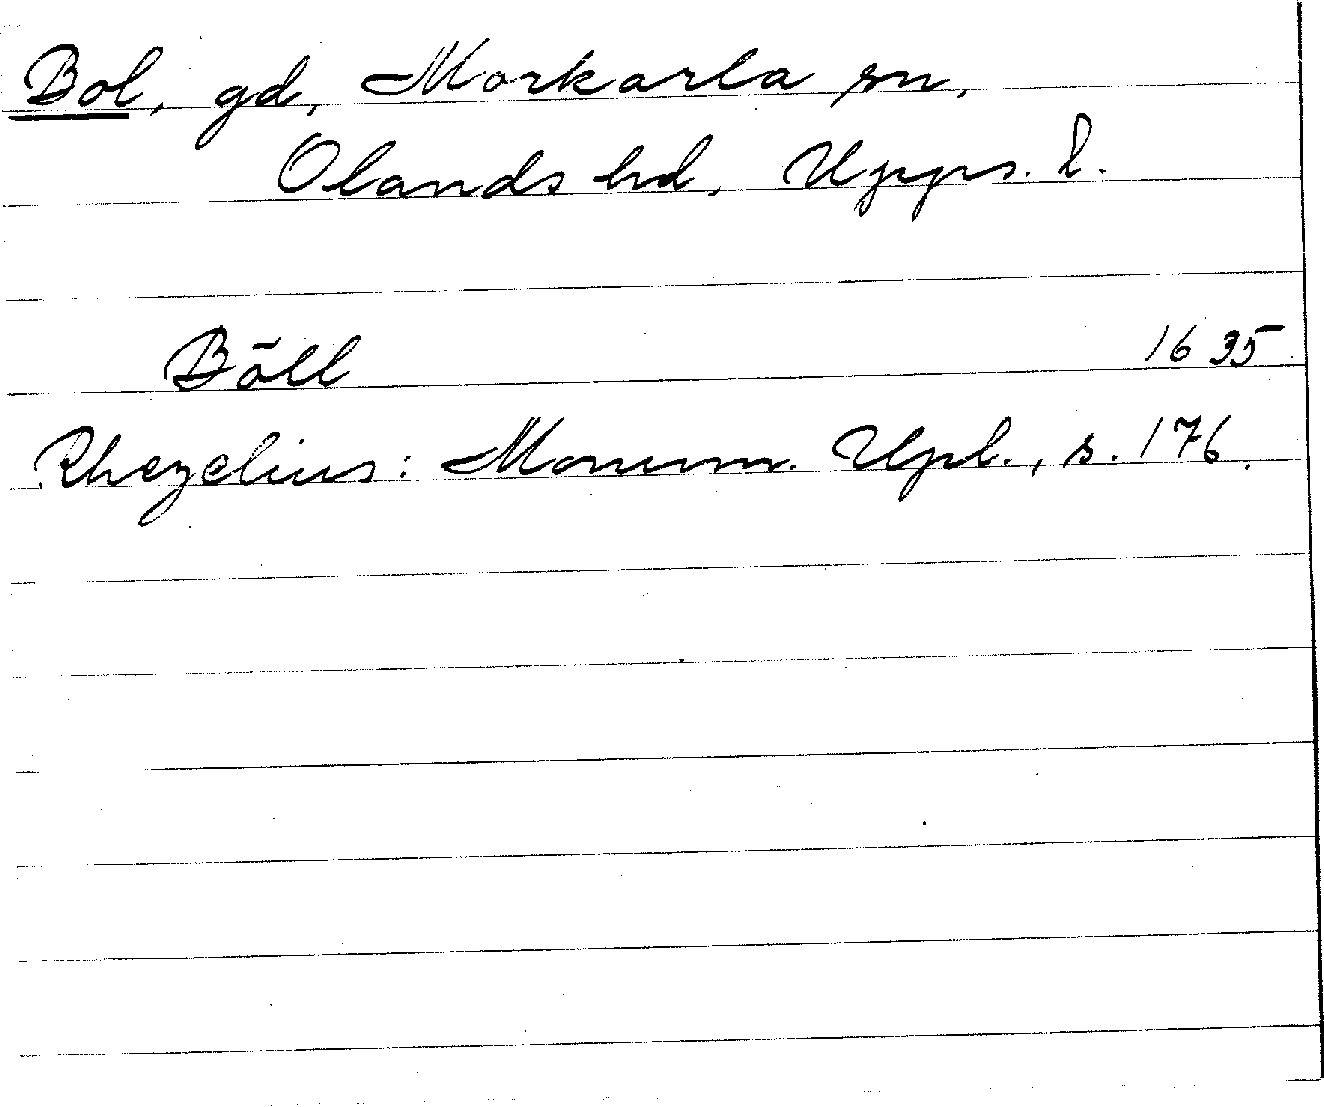 Bol, gd, Morkarla sn,
Olands hd, Upps. l.
Böll 1635
Rhezelius: Monum. Upl., s. 176.